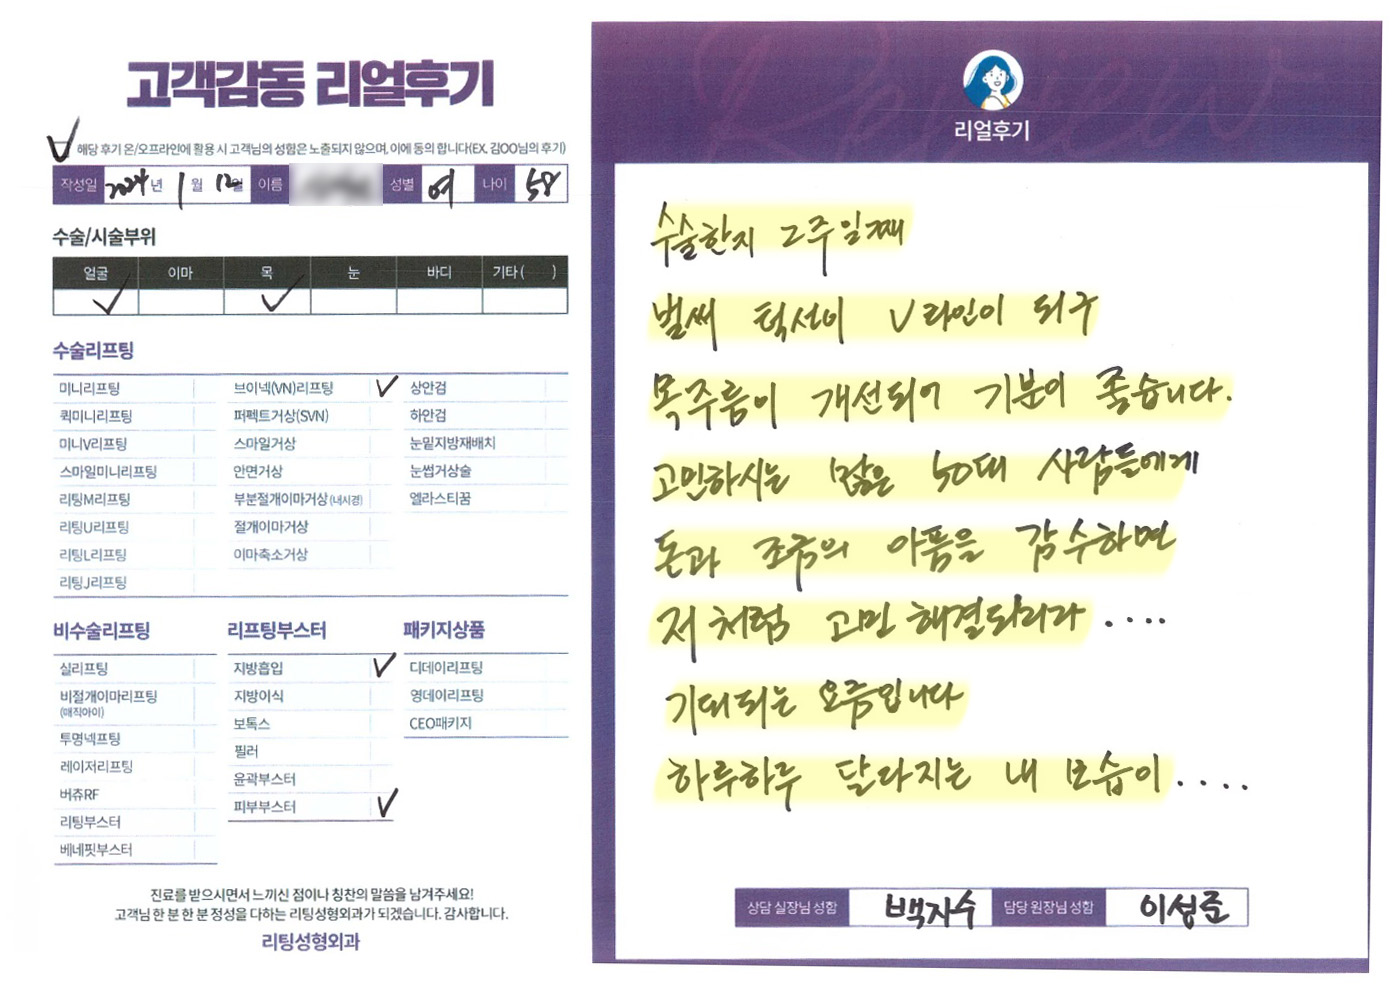 고객감동 리얼후기
해당 후기 온/오프라인에 활용 시 고객님의 성함은 노출되지 않으며, 이에 동의 합니다(EX. 김OO님의 후기)
작성일 2024년 1월 12일 이름 성별 여 나이 58
수술/시술부위
얼굴 이마 목 눈 바디 기타 ( )
수술리프팅
미니리프팅 브이넥(VN)리프팅 상안검
퀵미니리프팅 퍼펙트거상(SVN) 하안검
미니V리프팅 스마일거상 눈밑지방재배치
스마일미니리프팅 안면거상 눈썹거상술
리팅M리프팅 부분절개이마거상 (내시경) 엘라스티꿈
리팅U리프팅 절개이마거상
리팅L리프팅 이마축소거상
리팅J리프팅
비수술리프팅 리프팅부스터 패키지상품
실리프팅 지방흡입 디데이리프팅
비절개이마리프팅 지방이식 영데이리프팅
(매직아이)
보톡스 CEO패키지
투명넥프팅 필러
레이저리프팅 윤곽부스터
버츄RF 피부부스터
리팅부스터
베네핏부스터
진료를 받으시면서 느끼신 점이나 칭찬의 말씀을 남겨주세요!
고객님 한 분 한 분 정성을 다하는 리팅성형외과가 되겠습니다. 감사합니다.
리팅성형외과
Review
리얼후기
수술한지 2주일째
벌써 턱선이 V라인이 되구
목주름이 개선되어 기분이 좋습니다.
고민하시는 많은 50대 사람들에게
돈과 조금의 아픔을 감수하면
저처럼 고민 해결되리라 ....
기대되는 요즘입니다
하루하루 달라지는 내 모습이 ....
상담 실장님 성함 백지수 담당 원장님 성함 이성준